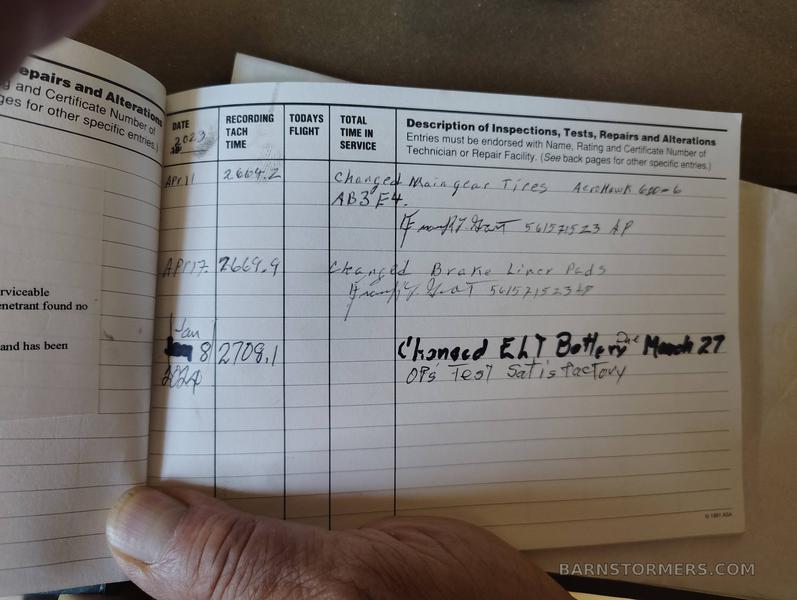 epairs and Alterations
g and Certificate Number of
ges for other specific entries.)
rviceable
enetrant found no
and has been
DATE
2023
RECORDING
TACH
TIME
TODAYS
FLIGHT
TOTAL
TIME IN
SERVICE
Description of Inspections, Tests, Repairs and Alterations
Entries must be endorsed with Name, Rating and Certificate Number of
Technician or Repair Facility. (See back pages for other specific entries.)
April 2664.2 Changed Main gear Tires AeroHawk 600-6
AB3E4.
561571523 AP
2669.9 Changed Brake Liner Pads
561571523 AP
Jan
8 2708.1 Changed ELT Battery Due March 27
2024 OPs Test Satisfactory
© 1991 ASA
BARNSTORMERS.COM